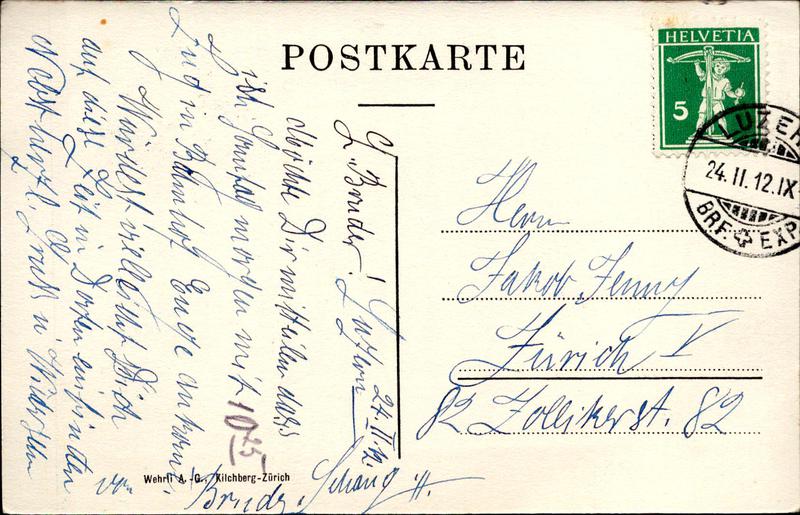 POSTKARTE
HELVETIA
5
LUZERN
24.II.12.IX
BRF. EXP
Luzern 24.II.12.
L. Bruder!
Möchte Dir mitteilen dass
ich Sonntag morgen mit 10 25
Zug in Bahnhof Enge ankomme.
Würdest vielleicht Dich
auf diese Zeit in Dorten einfinden
Nebst herzl. Gruß u. Wiedersehn
von Bruder
Herrn
Jakob Jenny
Zürich V
82 Zollikerst. 82
Wehrli A.-G., Kilchberg-Zürich